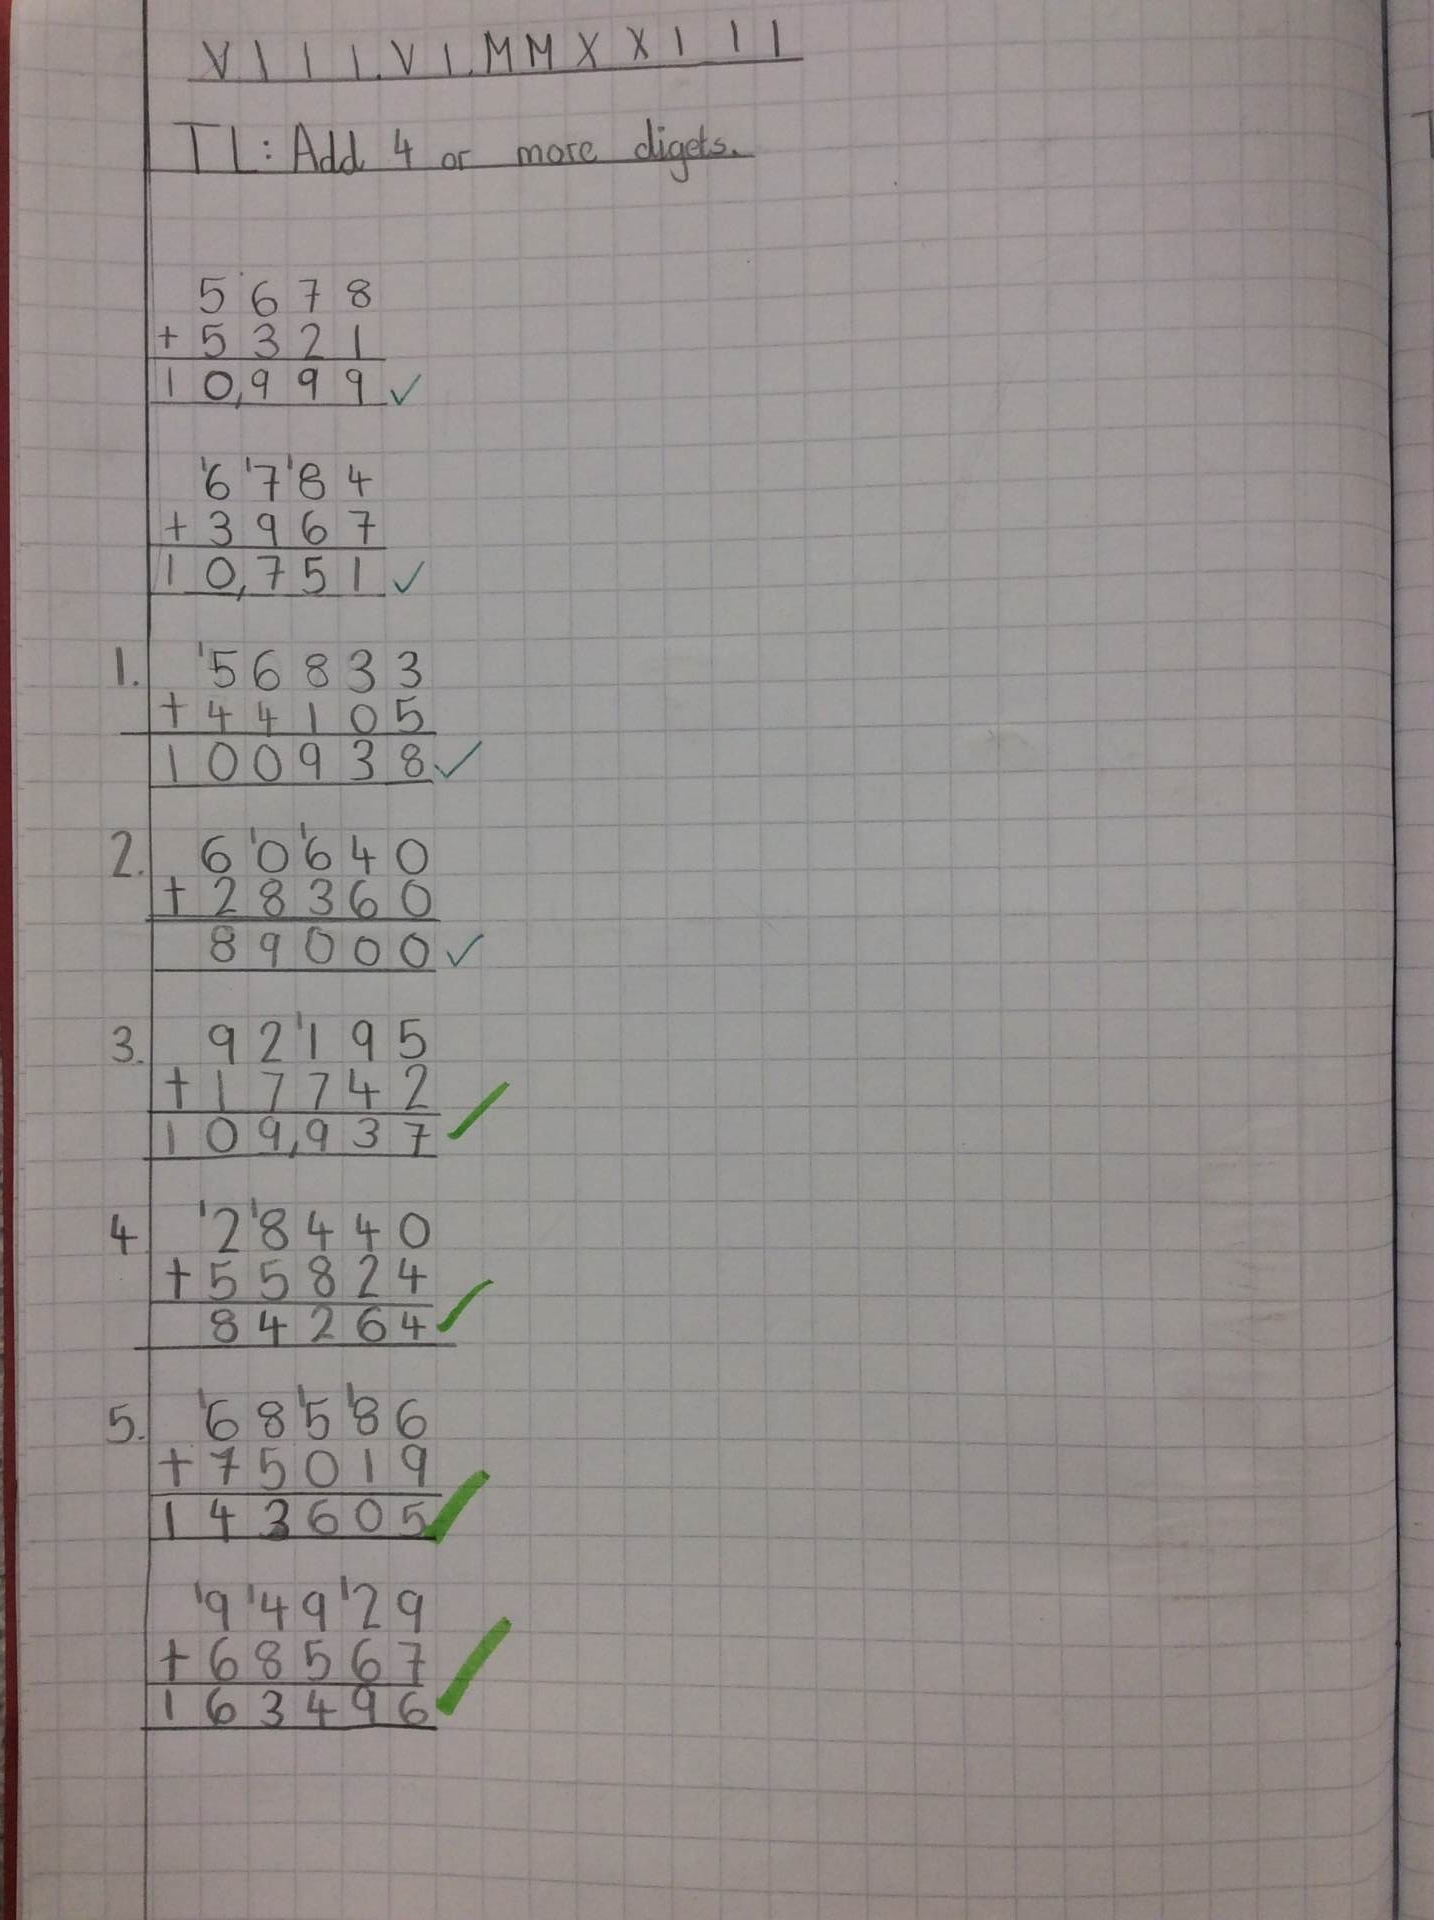 VIII.VI.MMXXIII
TL: Add 4 or more digets.
5678
+5321
10,999 ✓
'6'7'84
+3967
10,751 ✓
1. '56833
+44105
100938 ✓
2. 6'0'640
+28360
89000 ✓
3. 92'195
+17742
109,937 ✓
4 '2'8440
+55824
84264 ✓
5. '68'5'86
+75019
143605 ✓
'9'49'29
+68567
163496 ✓